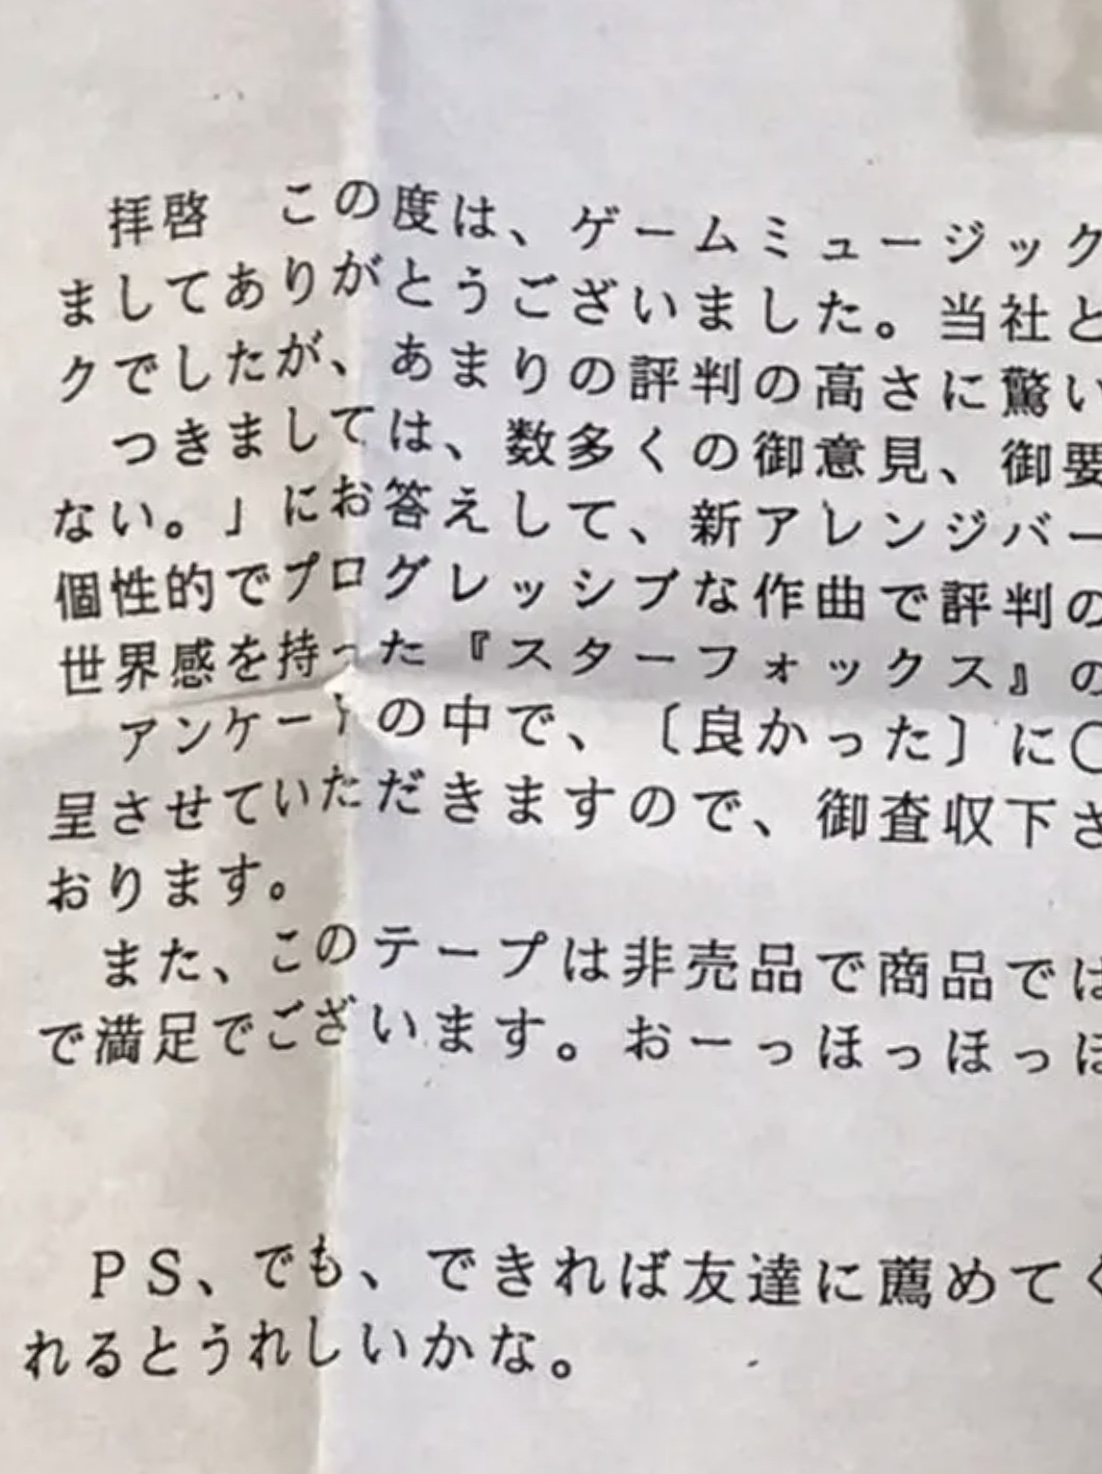 拝啓　この度は、ゲームミュージック
ましてありがとうございました。当社と
クでしたが、あまりの評判の高さに驚い
つきましては、数多くの御意見、御要
ない。」にお答えして、新アレンジバー
個性的でプログレッシブな作曲で評判の
世界感を持った『スターフォックス』の
アンケートの中で、〔良かった〕に○
呈させていただきますので、御査収下さ
おります。
また、このテープは非売品で商品では
で満足でございます。おーっほっほっほ
ＰＳ、でも、できれば友達に薦めてく
れるとうれしいかな。